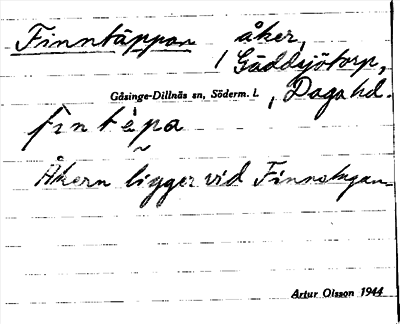 Finntäppan åker,
Gäddsjötorp,
Gåsinge-Dillnäs sn, Söderm. l. , Daga hd.
fintepa
Åkern ligger vid Finnstugan
Artur Olsson 1944